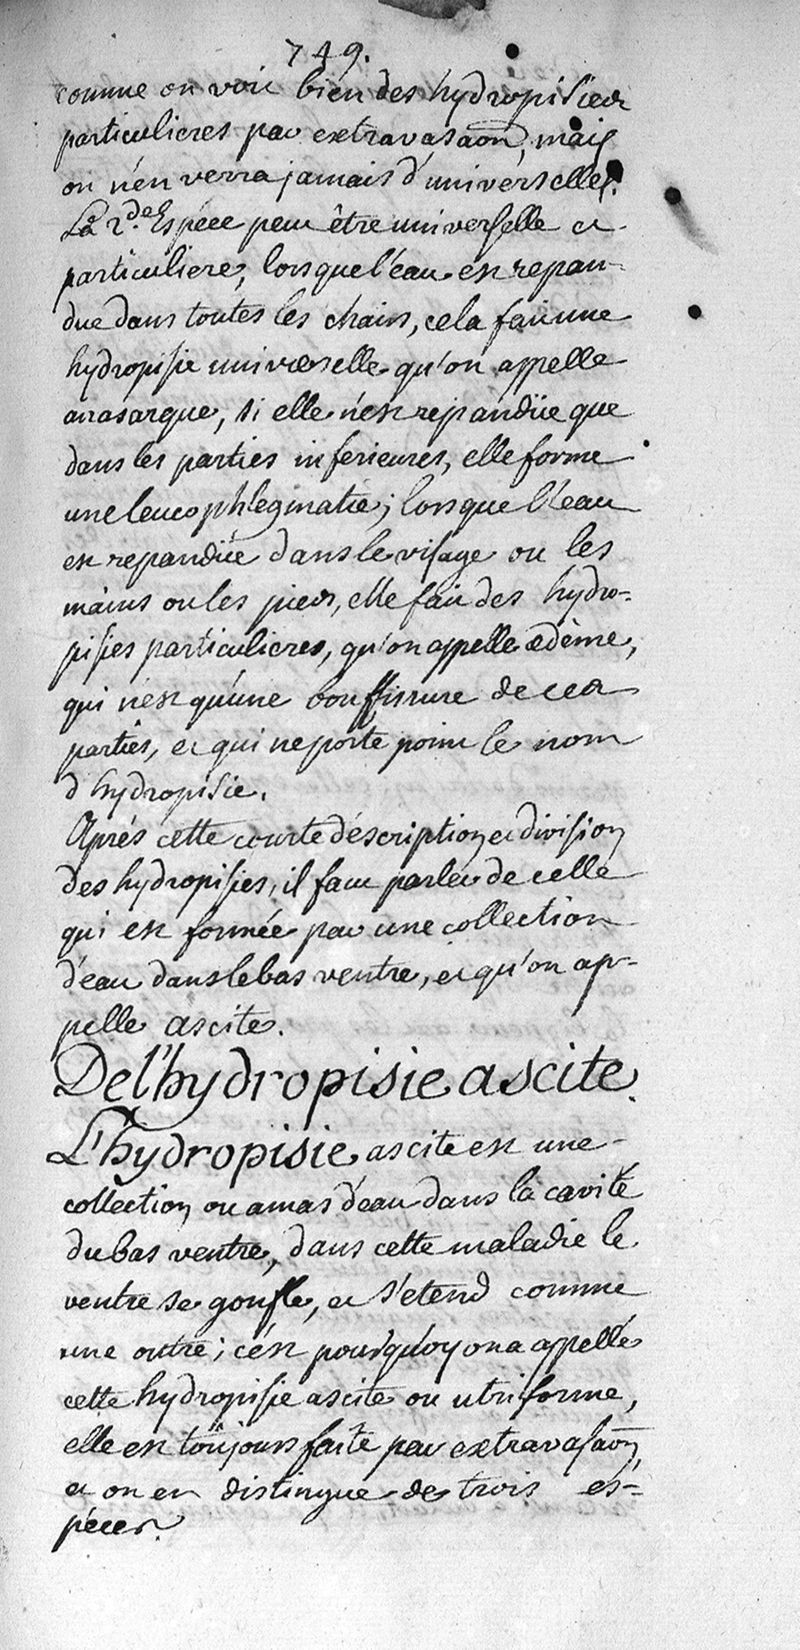 749.
comme on voit bien des hydropisies
particulieres par extravasaõn, mais
on n'en verra jamais d'universelles.
La 2.de Espéce peut être universelle et
particuliere, lorsque l'eau est repan-
due dans toutes les chairs, cela fait une
hydropisie universelle qu'on appelle
anasarque, si elle n'est repandüe que
dans les parties inferieures, elle forme
une leucophlegmatie; lorsque l'eau
est repandüe dans le visage ou les
mains ou les pieds, elle fait des hydro-
pisies particulieres, qu'on appelle œdème,
qui n'est qu'une bouffissure de ces
parties, et qui ne porte point le nom
d'hydropisie.
Aprés cette courte déscription et division
des hydropisies, il faut parler de celle
qui est formée par une collection
d'eau dans le bas ventre, et qu'on ap-
pelle ascite.
De l'hydropisie ascite.
L'hydropisie ascite est une
collection ou amas d'eau dans la cavité
du bas ventre, dans cette maladie le
ventre se gonfle, et s'etend comme
une outre; c'est pourquoy on a appellé
cette hydropisie ascite ou utriforme,
elle est toûjours faite par extravasaõn,
et on en distingue de trois es-
péces.